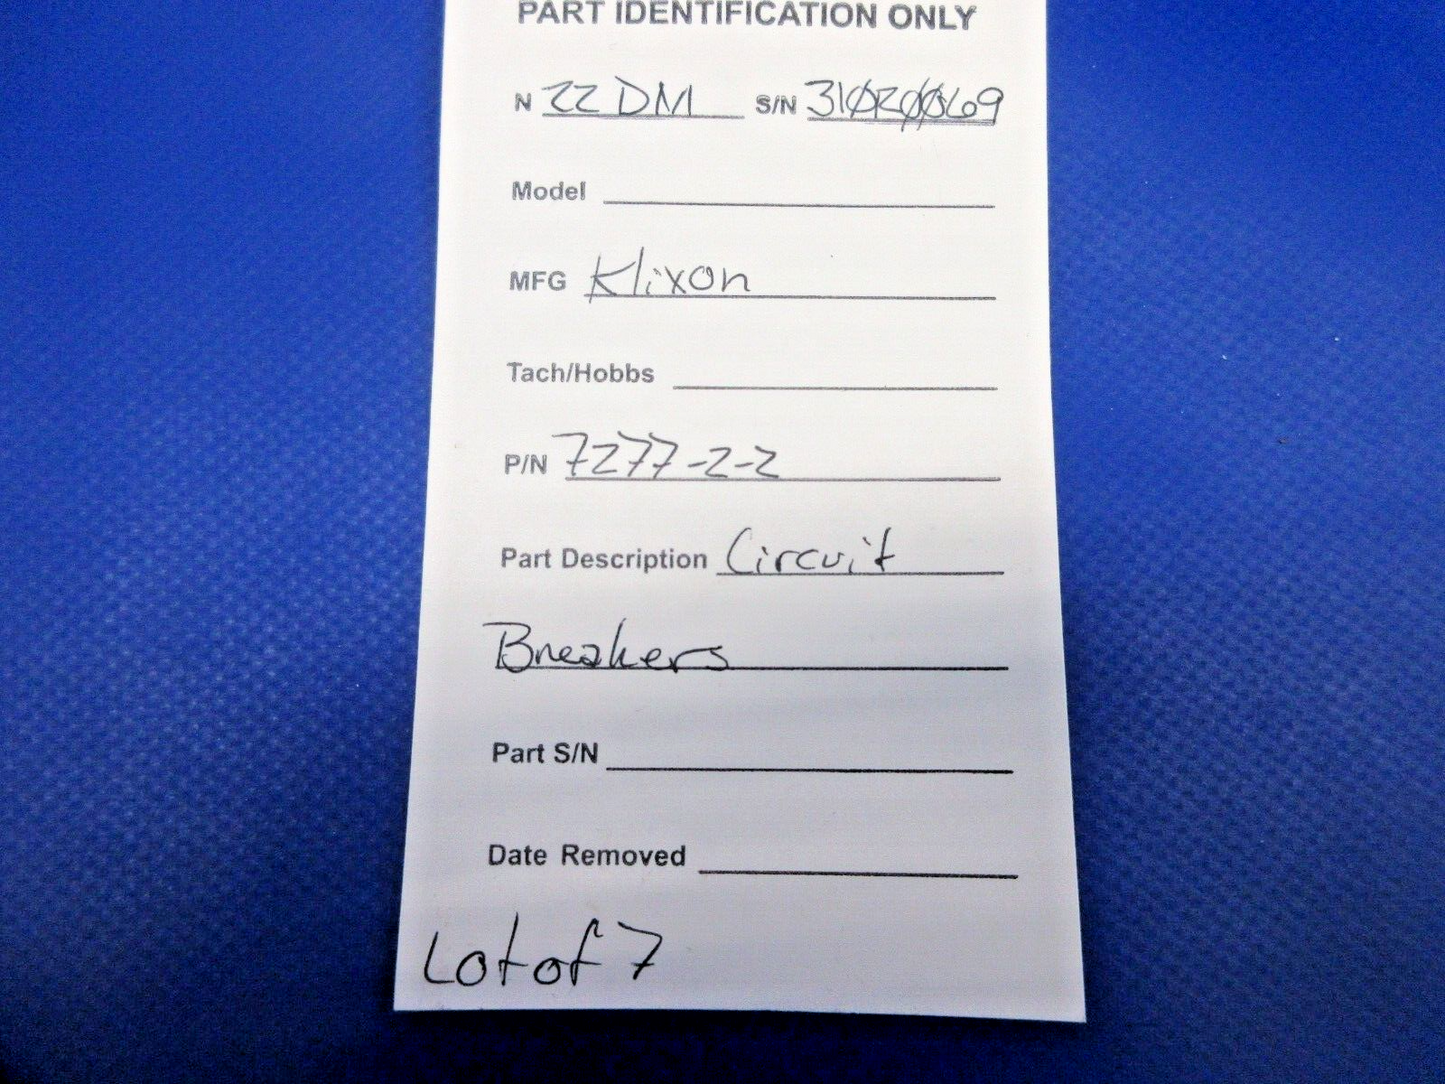 PART IDENTIFICATION ONLY
N 22DM S/N 310R0069
Model
MFG Klixon
Tach/Hobbs
P/N 7277-2-2
Part Description Circuit
Breakers
Part S/N
Date Removed
Lot of 7